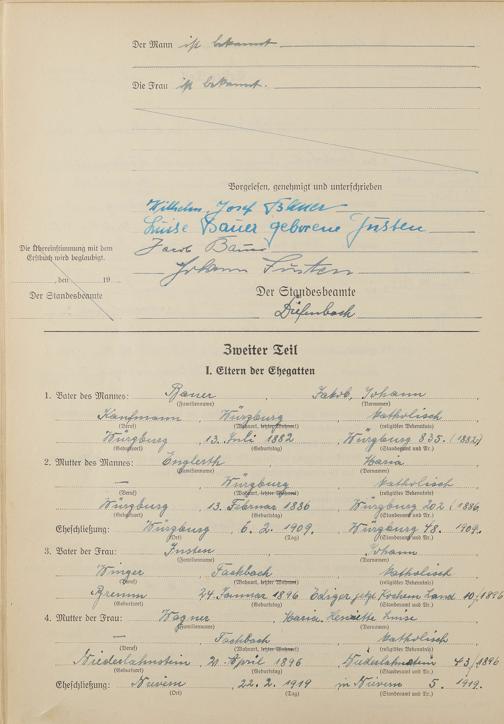 Der Mann ist bekannt
Die Frau ist bekannt.
Vorgelesen, genehmigt und unterschrieben
Wilhelm Josef Bauer
Luise Bauer geborene Justen
Jacob Bauer
Johann Justen
Die Übereinstimmung mit dem
Erstbuch wird beglaubigt.
, den 19
Der Standesbeamte
Der Standesbeamte
Diefenbach
Zweiter Teil
I. Eltern der Ehegatten
1. Vater des Mannes: Bauer, Jakob, Johann
(Familienname) (Vornamen)
Kaufmann, Würzburg, katholisch
(Beruf) (Wohnort, letzter Wohnort) (religiöses Bekenntnis)
Würzburg, 13. Juli 1882, Würzburg 835. (1882)
(Geburtsort) (Geburtstag) (Standesamt und Nr.)
2. Mutter des Mannes: Englerth, Maria
(Familienname) (Vornamen)
—, Würzburg, katholisch
(Beruf) (Wohnort, letzter Wohnort) (religiöses Bekenntnis)
Würzburg, 13. Februar 1886, Würzburg 202 (1886
(Geburtsort) (Geburtstag) (Standesamt und Nr.)
Eheschließung: Würzburg, 6. 2. 1909, Würzburg 48. 1909.
(Ort) (Tag) (Standesamt und Nr.)
3. Vater der Frau: Justen, Johann
(Familienname) (Vornamen)
Winzer, Fachbach, katholisch
(Beruf) (Wohnort, letzter Wohnort) (religiöses Bekenntnis)
Bremm, 24. Januar 1896, Ediger jetzt Kochem Land 10/1896
(Geburtsort) (Geburtstag) (Standesamt und Nr.)
4. Mutter der Frau: Wagner, Maria Henriette Luise
(Familienname) (Vornamen)
—, Fachbach, katholisch
(Beruf) (Wohnort, letzter Wohnort) (religiöses Bekenntnis)
Niederlahnstein, 20. April 1896, Niederlahnstein 43/1896
(Geburtsort) (Geburtstag) (Standesamt und Nr.)
Eheschließung: Nievern, 22. 2. 1919, in Nievern 5. 1919.
(Ort) (Tag) (Standesamt und Nr.)